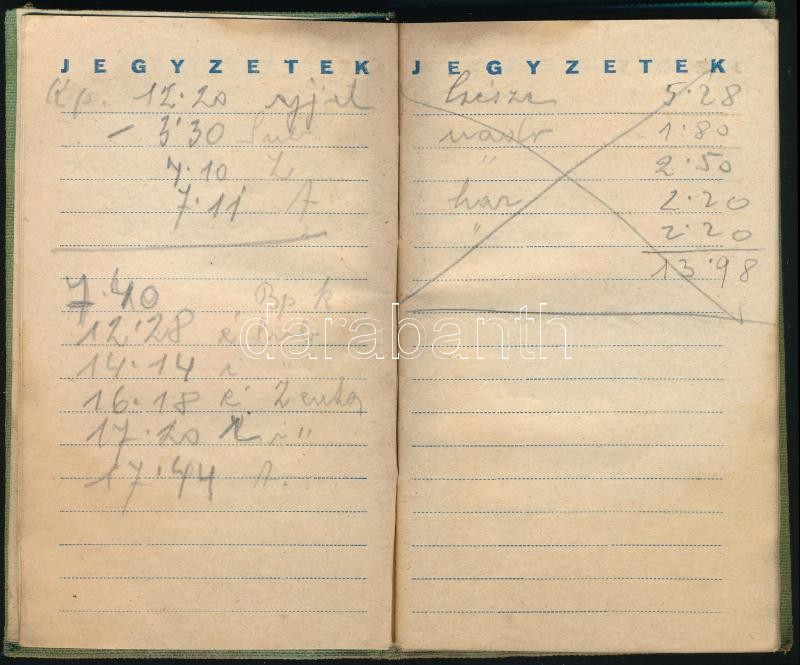 JEGYZETEK
12.20 éjjel
- 3.30
7.10 Z
7.11 A
7.40 Bp k
12.28 é
14.14 i "
16.18 é Zenta
17.20 i "
17.44 A.
JEGYZETEK
5.28
1.80
" 2.50
2.20
" 2.20
13.98
darabanth